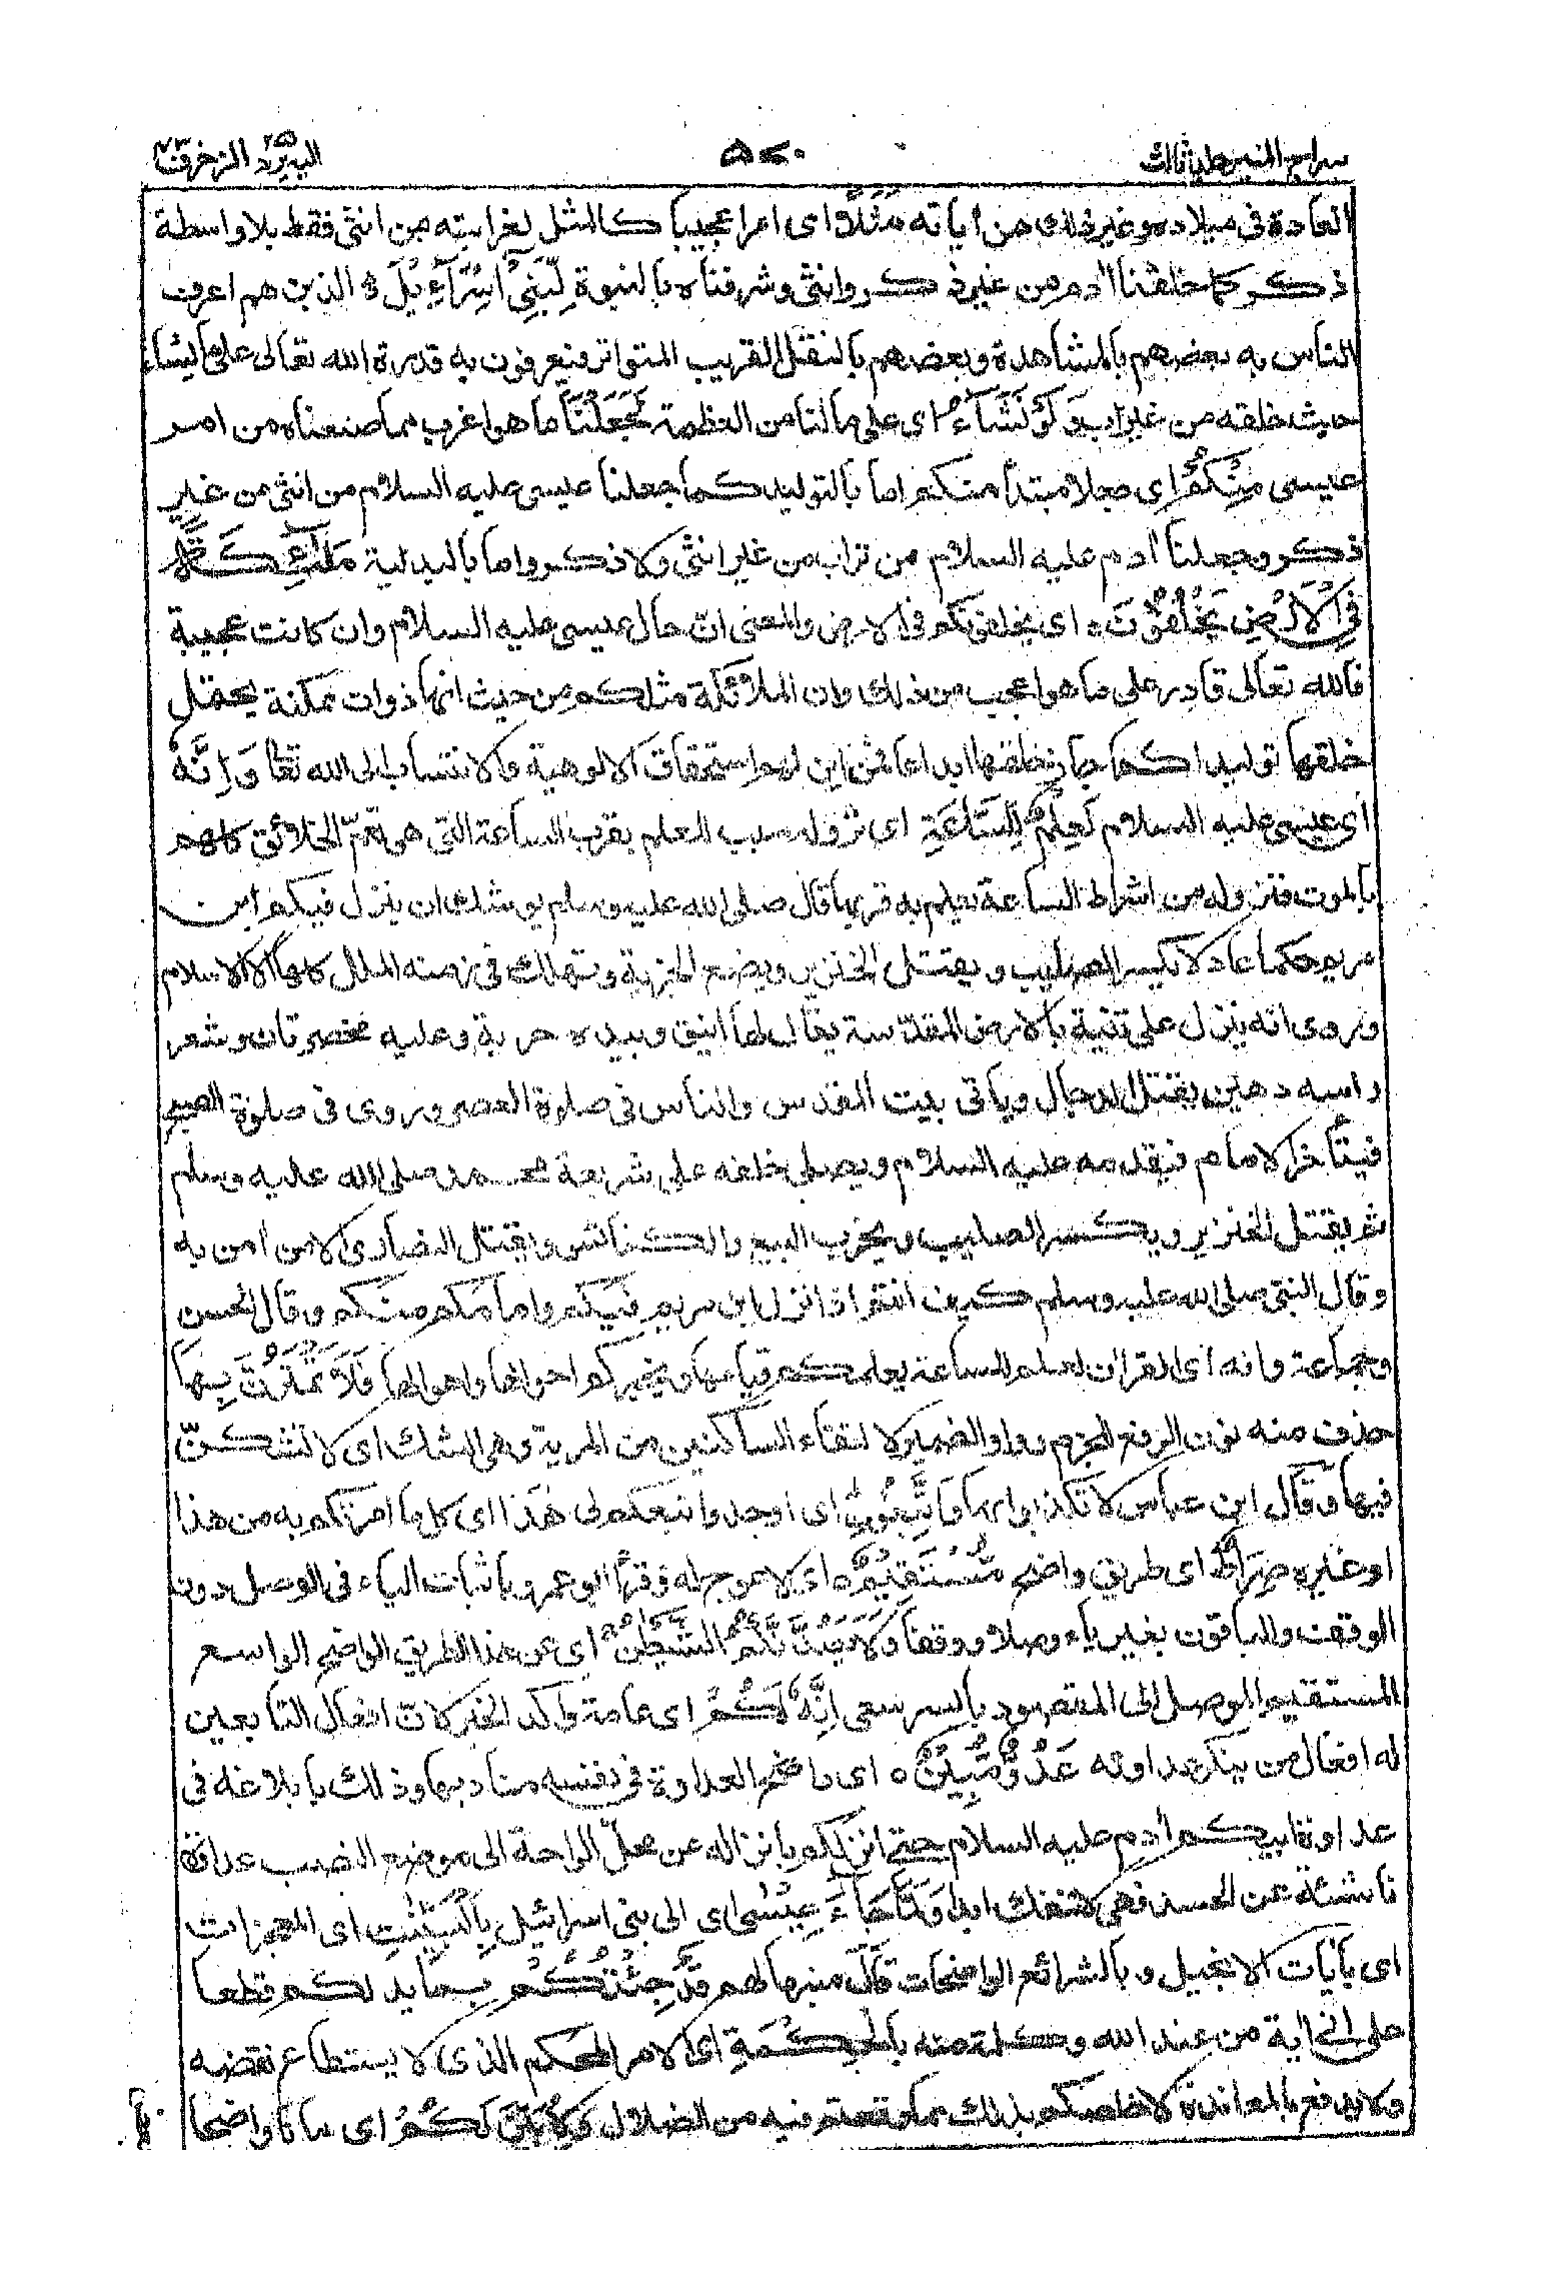 سراج المنير جلد ثالث
٥٧٠
اليه يرد ٢٥ الزخرف ٤٣
العادة فى ميلاده وغير ذلك من أياته مَثَلًا اى امرا عجيبا كالمثل لغرابته من انثى فقط بلا واسطة
ذكر كما خلقنا أدم من غير ذكر وانثى وشرفناه بالنبوة لِّبَنِىْٓ اِسْرَآءِيْلَ ه الذين هم اعرف
الناس به بعضهم بالمشاهدة وبعضهم بالنقل القريب المتواتر فيعرفون به قدرة الله تعالى على ما يشاء
حيث خلقه من غير اب وَلَوْ نَشَآءُ اى على ما لنا من العظمة لَجَعَلْنَا ما هو اغرب مما صنعناه من امر
عيسى مِنْكُمْ اى جعلا مبتدأ منكم اما بالتوليد كما جعلنا عيسى عليه السلام من انثى من غير
ذكر وجعلنا أدم عليه السلام من تراب من غير انثى ولا ذكر واما بالبدلية مَلٰٓئِكَةً
فِى الْاَرْضِ يَخْلُفُوْنَ ه اى يخلفونكم فى الارض والمعنى ان حال عيسى عليه السلام وان كانت عجيبة
فالله تعالى قادر على ما هو اعجب من ذلك وان الملائكة مثلكم من حيث انها ذوات ممكنة يحتمل
خلقها توليدا كما جاز خلقها ابداعا فمن اين لهم استحقاق الالوهية والانتساب الى الله تعا وَاِنَّهٗ
اى عيسى عليه السلام لَعِلْمٌ لِّلسَّاعَةِ اى نزوله سبب للعلم بقرب الساعة التى هى تعمّ الخلائق كلهم
بالموت فنزوله من اشراط الساعة يعلم به قربها قال صلى الله عليه وسلم يوشك ان ينزل فيكم ابن
مريم حكما عادلا يكسر الصليب ويقتل الخنزير ويضع الجزية وتهلك فى زمنه الملل كلها الا الاسلام
وروى انه ينزل على ثنية بالارض المقدّسة يقال لها انيق وبيده حربة وعليه مخصرتان وشعر
راسه دهين يقتل الدجال وياتى بيت المقدس والناس فى صلوة العصر وروى فى صلوة الصبح
فيتأخر الامام فيقدمه عليه السلام ويصلى خلفه على شريعة محمد صلى الله عليه وسلم
ثم يقتل الخنزير ويكسر الصليب ويخرب البيع والكنائس ويقتل النصارى الا من أمن به
وقال النبى صلى الله عليه وسلم كيف انتم اذا نزل ابن مريم فيكم وامامكم منكم وقال الحسن
وجماعة وانه اى القرأن لعلم للساعة يعلمكم قيامها ويخبركم احوالها واهوالها فَلَا تَمْتَرُنَّ بِهَا
حذف منه نون الرفع للجزم وواو الضمير لالتقاء الساكنين من المرية وهى الشك اى لا تشكنّ
فيها وقال ابن عباس لا تكذبوا بها وَاتَّبِعُوْنِ اى اوجدوا تبعكم لى هٰذَا اى كل ما امرتكم به من هذا
او غيره صِرَاطٌ اى طريق واضح مُّسْتَقِيْمٌ ه اى لا عوج له وقرأ ابو عمرو باثبات الياء فى الوصل دون
الوقف والباقون بغير ياء وصلا ووقفا وَلَا يَصُدَّنَّكُمُ الشَّيْطٰنُ اى عن هذا الطريق الواضح الواسع
المستقيم الموصل الى المقصود بايسر سعى اِنَّهٗ لَكُمْ اى عامة واكد الخبر لان افعال التابعين
له افعال من ينكر عداوته عَدُوٌّ مُّبِيْنٌ ه اى واضح العداوة فى نفسه مناد بها وذلك بابلاغه فى
عداوة ابيكم أدم عليه السلام حتى انزلكم بانزاله عن محلّ الراحة الى موضع النصب عداوة
ناشئة عن الحسد فهى لا تنفك ابدا وَلَمَّا جَآءَ عِيْسٰى اى الى بنى اسرائيل بِالْبَيِّنٰتِ اى المعجزات
اى بأيات الانجيل وبالشرائع الواضحات قَالَ منبها لهم قَدْ جِئْتُكُمْ بما يدلكم قطعا
على انى أية من عند الله وكلمة منه بِالْحِكْمَةِ اى الامر المحكم الذى لا يستطاع نقضه
ولا يدفع بالمعاندة لاخلصكم بذلك مما وقعتم فيه من الضلال وَلِاُبَيِّنَ لَكُمْ اى بيانا واضحا